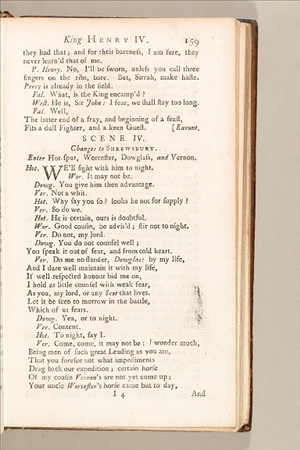 King HENRY IV. 159
they had that; and for their bareness, I am sure, they
never learn'd that of me.
P. Henry. No, I'll be sworn, unless you call three
fingers on the ribs, bare. But, Sirrah, make haste.
Percy is already in the field.
Fal. What, is the King encamp'd?
West. He is, Sir John: I fear, we shall stay too long.
Fal. Well,
The latter end of a fray, and beginning of a feast,
Fits a dull Fighter, and a keen Guest. [Exeunt.
SCENE IV.
Changes to SHREWSBURY.
Enter Hot-spur, Worcester, Dowglass, and Vernon.
Hot. WE'll fight with him to night.
Wor. It may not be.
Dowg. You give him then advantage.
Ver. Not a whit.
Hot. Why say you so? looks he not for supply?
Ver. So do we.
Hot. He is certain, ours is doubtful.
Wor. Good cousin, be advis'd; stir not to night.
Ver. Do not, my lord.
Dowg. You do not counsel well;
You speak it out of fear, and from cold heart.
Ver. Do me no slander, Dowglas: by my life,
And I dare well maintain it with my life,
If well-respected honour bid me on,
I hold as little counsel with weak fear,
As you, my lord, or any Scot that lives.
Let it be seen to morrow in the battle,
Which of us fears.
Dowg. Yea, or to night.
Ver. Content.
Hot. To night, say I.
Ver. Come, come, it may not be: I wonder much,
Being men of such great Leading as you are,
That you foresee not what impediments
Drag back our expedition; certain horse
Of my cousin Vernon's are not yet come up;
Your uncle Worcester's horse came but to day,
I 4 And